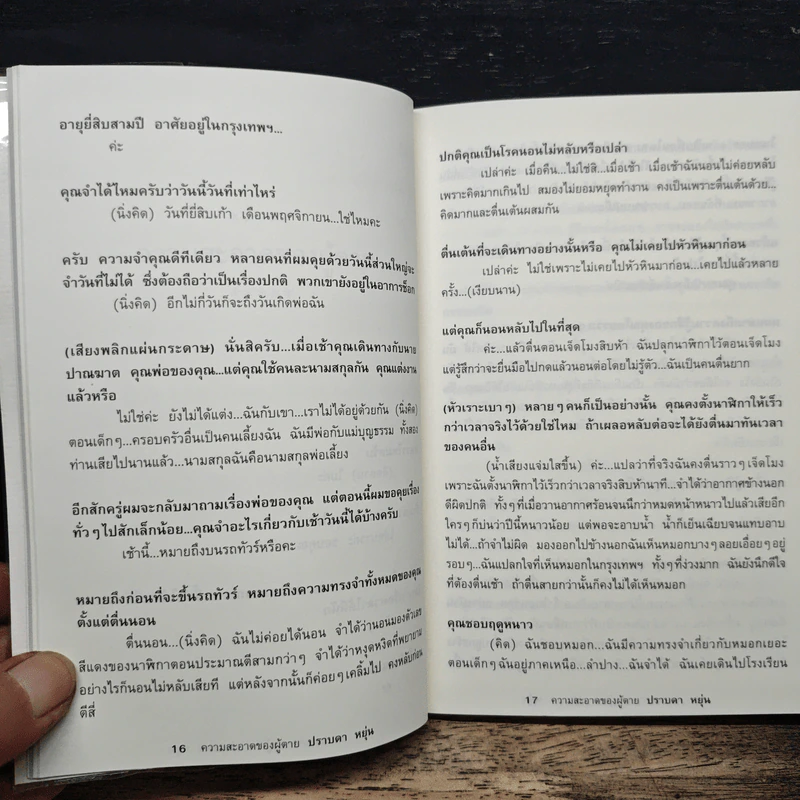 อายุยี่สิบสามปี อาศัยอยู่ในกรุงเทพฯ...
ค่ะ
คุณจำได้ไหมครับว่าวันนี้วันที่เท่าไหร่
(นิ่งคิด) วันที่ยี่สิบเก้า เดือนพฤศจิกายน...ใช่ไหมคะ
ครับ ความจำคุณดีทีเดียว หลายคนที่ผมคุยด้วยวันนี้ส่วนใหญ่จะ
จำวันที่ไม่ได้ ซึ่งต้องถือว่าเป็นเรื่องปกติ พวกเขายังอยู่ในอาการช็อก
(นิ่งคิด) อีกไม่กี่วันก็จะถึงวันเกิดพ่อฉัน
(เสียงพลิกแผ่นกระดาษ) นั่นสิครับ...เมื่อเช้าคุณเดินทางกับนาย
ปาณฆาต คุณพ่อของคุณ...แต่คุณใช้คนละนามสกุลกัน คุณแต่งงาน
แล้วหรือ
ไม่ใช่ค่ะ ยังไม่ได้แต่ง...ฉันกับเขา...เราไม่ได้อยู่ด้วยกัน (นิ่งคิด)
ตอนเด็กๆ...ครอบครัวอื่นเป็นคนเลี้ยงฉัน ฉันมีพ่อกับแม่บุญธรรม ทั้งสอง
ท่านเสียไปนานแล้ว...นามสกุลฉันคือนามสกุลพ่อเลี้ยง
อีกสักครู่ผมจะกลับมาถามเรื่องพ่อของคุณ แต่ตอนนี้ผมขอคุยเรื่อง
ทั่วๆไปสักเล็กน้อย...คุณจำอะไรเกี่ยวกับเช้าวันนี้ได้บ้างครับ
เช้านี้...หมายถึงบนรถทัวร์หรือคะ
หมายถึงก่อนที่จะขึ้นรถทัวร์ หมายถึงความทรงจำทั้งหมดของคุณ
ตั้งแต่ตื่นนอน
ตื่นนอน...(นิ่งคิด) ฉันไม่ค่อยได้นอน จำได้ว่านอนมองตัวเลข
สีแดงของนาฬิกาตอนประมาณตีสามกว่าๆ จำได้ว่าหงุดหงิดที่พยายาม
อย่างไรก็นอนไม่หลับเสียที แต่หลังจากนั้นก็ค่อยๆเคลิ้มไป คงหลับก่อน
ตีสี่
16 ความสะอาดของผู้ตาย ปราบดา หยุ่น
ปกติคุณเป็นโรคนอนไม่หลับหรือเปล่า
เปล่าค่ะ เมื่อคืน...ไม่ใช่สิ...เมื่อเช้า เมื่อเช้าฉันนอนไม่ค่อยหลับ
เพราะคิดมากเกินไป สมองไม่ยอมหยุดทำงาน คงเป็นเพราะตื่นเต้นด้วย...
คิดมากและตื่นเต้นผสมกัน
ตื่นเต้นที่จะเดินทางอย่างนั้นหรือ คุณไม่เคยไปหัวหินมาก่อน
เปล่าค่ะ ไม่ใช่เพราะไม่เคยไปหัวหินมาก่อน...เคยไปแล้วหลาย
ครั้ง...(เงียบนาน)
แต่คุณก็นอนหลับไปในที่สุด
ค่ะ...แล้วตื่นตอนเจ็ดโมงสิบห้า ฉันปลุกนาฬิกาไว้ตอนเจ็ดโมง
แต่รู้สึกว่าจะยื่นมือไปกดแล้วนอนต่อโดยไม่รู้ตัว...ฉันเป็นคนตื่นยาก
(หัวเราะเบาๆ) หลายๆคนก็เป็นอย่างนั้น คุณคงตั้งนาฬิกาให้เร็ว
กว่าเวลาจริงไว้ด้วยใช่ไหม ถ้าเผลอหลับต่อจะได้ยังตื่นมาทันเวลา
ของคนอื่น
(น้ำเสียงแจ่มใสขึ้น) ค่ะ...แปลว่าที่จริงฉันคงตื่นราวๆเจ็ดโมง
เพราะฉันตั้งนาฬิกาไว้เร็วกว่าเวลาจริงสิบห้านาที...จำได้ว่าอากาศข้างนอก
ดีผิดปกติ ทั้งๆที่เมื่อวานอากาศร้อนจนนึกว่าหมดหน้าหนาวไปแล้วเสียอีก
ใครๆก็บ่นว่าปีนี้หนาวน้อย แต่พอจะอาบน้ำ น้ำก็เย็นเฉียบจนแทบอาบ
ไม่ได้...ถ้าจำไม่ผิด มองออกไปข้างนอกฉันเห็นหมอกบางๆลอยเอื่อยๆอยู่
รอบๆ...ฉันแปลกใจที่เห็นหมอกในกรุงเทพฯ ทั้งๆที่ง่วงมาก ฉันยังนึกดีใจ
ที่ต้องตื่นเช้า ถ้าตื่นสายกว่านั้นก็คงไม่ได้เห็นหมอก
คุณชอบฤดูหนาว
(คิด) ฉันชอบหมอก...ฉันมีความทรงจำเกี่ยวกับหมอกเยอะ
ตอนเด็กๆฉันอยู่ภาคเหนือ...ลำปาง...ฉันจำได้ ฉันเคยเดินไปโรงเรียน
17 ความสะอาดของผู้ตาย ปราบดา หยุ่น